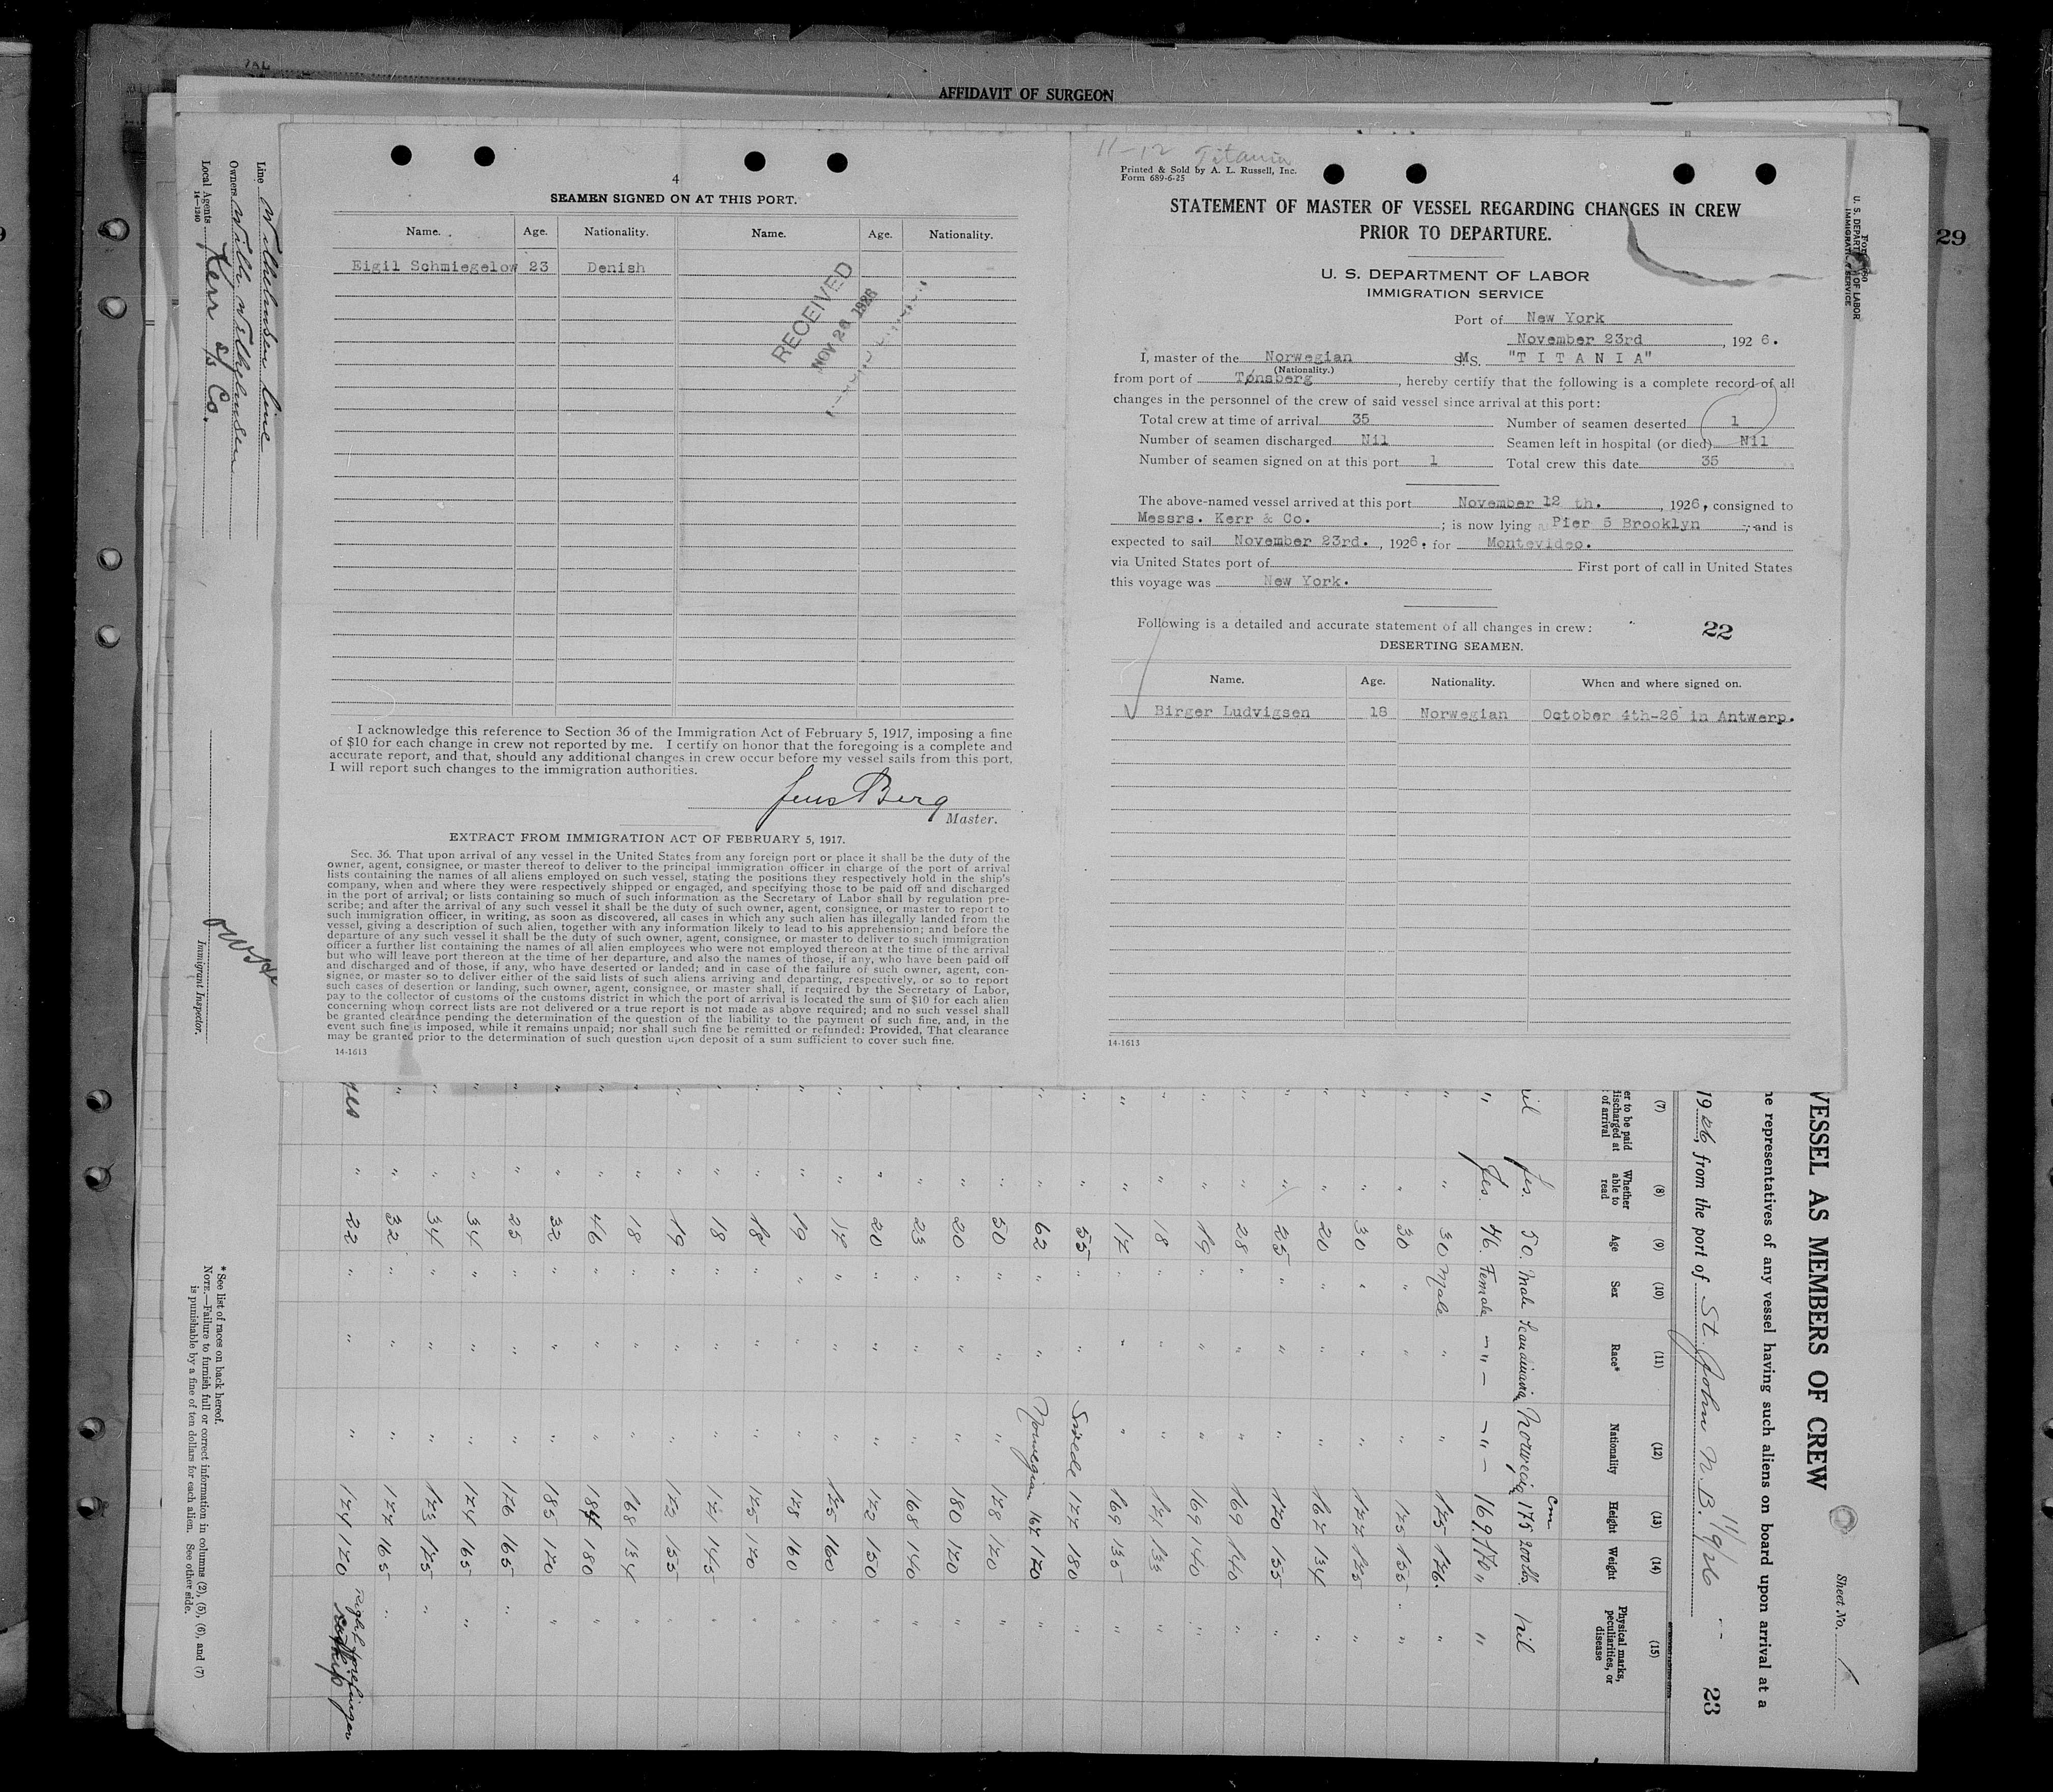 AFFIDAVIT OF SURGEON
29
4
SEAMEN SIGNED ON AT THIS PORT.
Name. Age. Nationality. Name. Age. Nationality.
Eigil Schmiegelow 23 Denish
RECEIVED
NOV 26 1926
I acknowledge this reference to Section 36 of the Immigration Act of February 5, 1917, imposing a fine
of $10 for each change in crew not reported by me. I certify on honor that the foregoing is a complete and
accurate report, and that, should any additional changes in crew occur before my vessel sails from this port,
I will report such changes to the immigration authorities.
Jens Berg
Master.
EXTRACT FROM IMMIGRATION ACT OF FEBRUARY 5, 1917.
Sec. 36. That upon arrival of any vessel in the United States from any foreign port or place it shall be the duty of the
owner, agent, consignee, or master thereof to deliver to the principal immigration officer in charge of the port of arrival
lists containing the names of all aliens employed on such vessel, stating the positions they respectively hold in the ship's
company, when and where they were respectively shipped or engaged, and specifying those to be paid off and discharged
in the port of arrival; or lists containing so much of such information as the Secretary of Labor shall by regulation pre-
scribe; and after the arrival of any such vessel it shall be the duty of such owner, agent, consignee, or master to report to
such immigration officer, in writing, as soon as discovered, all cases in which any such alien has illegally landed from the
vessel, giving a description of such alien, together with any information likely to lead to his apprehension; and before the
departure of any such vessel it shall be the duty of such owner, agent, consignee, or master to deliver to such immigration
officer a further list containing the names of all alien employees who were not employed thereon at the time of the arrival
but who will leave port thereon at the time of her departure, and also the names of those, if any, who have been paid off
and discharged and of those, if any, who have deserted or landed; and in case of the failure of such owner, agent, con-
signee, or master so to deliver either of the said lists of such aliens arriving and departing, respectively, or so to report
such cases of desertion or landing, such owner, agent, consignee, or master shall, if required by the Secretary of Labor,
pay to the collector of customs of the customs district in which the port of arrival is located the sum of $10 for each alien
concerning whom correct lists are not delivered or a true report is not made as above required; and no such vessel shall
be granted clearance pending the determination of the question of the liability to the payment of such fine, and, in the
event such fine is imposed, while it remains unpaid; nor shall such fine be remitted or refunded: Provided, That clearance
may be granted prior to the determination of such question upon deposit of a sum sufficient to cover such fine.
14-1613
11-12 Titania
Printed & Sold by A. L. Russell, Inc.
Form 689-6-25
STATEMENT OF MASTER OF VESSEL REGARDING CHANGES IN CREW
PRIOR TO DEPARTURE.
U. S. DEPARTMENT OF LABOR
IMMIGRATION SERVICE
Port of New York
November 23rd, 1926.
I, master of the Norwegian M.S. "T I T A N I A"
(Nationality.)
from port of Tønsberg, hereby certify that the following is a complete record of all
changes in the personnel of the crew of said vessel since arrival at this port:
Total crew at time of arrival 35 Number of seamen deserted 1
Number of seamen discharged Nil Seamen left in hospital (or died) Nil
Number of seamen signed on at this port 1 Total crew this date 35
The above-named vessel arrived at this port November 12 th., 1926, consigned to
Messrs. Kerr & Co.; is now lying Pier 5 Brooklyn; and is
expected to sail November 23rd., 1926, for Montevideo.
via United States port of First port of call in United States
this voyage was New York.
Following is a detailed and accurate statement of all changes in crew:
22
DESERTING SEAMEN.
Name. Age. Nationality. When and where signed on.
Birger Ludvigsen 18 Norwegian October 4th-26 in Antwerp.
14-1613
Line Wilhelmsen line
Owners Wilh. Wilhelmsen
Local Agents Kerr S/s Co.
14-1240
Immigrant Inspector.
U. S. DEPARTMENT OF LABOR
IMMIGRATION SERVICE
VESSEL AS MEMBERS OF CREW
Sheet No. 1
he representatives of any vessel having such aliens on board upon arrival at a
1926, from the port of St. John N.B. 11/9/26
23
(7) (8) (9) (10) (11) (12) (13) (14) (15)
er to be paid
discharged at
of arrival
Whether
able to
read
Age
Sex
Race*
Nationality
Height
Weight
Physical marks,
peculiarities, or
disease
cm
Yes. 50. Male Scandinavia Norwegia 175 200 lbs. Nil
Yes. 46. Female -"- -"- 169. 170 " "
30 Male " " 175 176. "
30 " " " 175 155 "
30 " " " 177 175 "
20 " " " 167 134 "
25 " " " 170 155 "
28 " " " 169 140 "
19 " " " 169 140 "
18 " " " 171 133 "
17 " " " 169 135 "
55 " " Swede 177 180 "
62 " " Norwegian 167 170 "
50 " " " 178 170 "
20 " " " 180 170 "
23 " " " 168 140 "
20 " " " 172 150 "
17 " " " 175 160 "
19 " " " 178 160 "
18 " " " 175 170 "
18 " " " 171 145 "
19 " " " 172 155 "
18 " " " 168 134 "
46 " " " 184 180 "
32 " " " 185 170 "
25 " " " 176 165 "
34 " " " 174 165 "
34 " " " 173 175 "
32 " " " 177 165 "
22 " " " 174 170 Right forefinger
*See list of races on back hereof.
NOTE.—Failure to furnish full or correct information in columns (2), (5), (6), and (7)
is punishable by a fine of ten dollars for each alien. See other side.